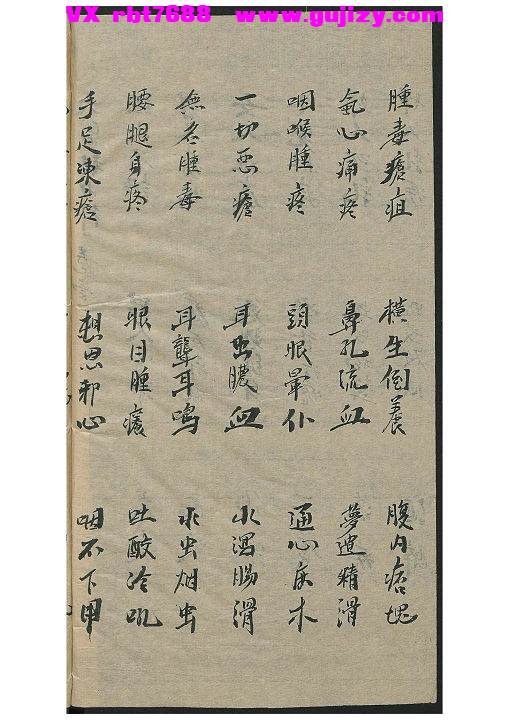 VX rbt7688 www.gujizy.com
腫毒瘡疽 橫生倒養 腹内痞塊
氣心痛疼 鼻孔流血 夢遺精滑
咽喉腫疼 頭眼暈仆 通心床木
一切惡瘡 耳出膿血 水瀉腸滑
無名腫毒 耳聾耳鳴
腰腿身疼 眼目腫癢 吐酸冷
手足凍瘡 想思邪心 咽不下